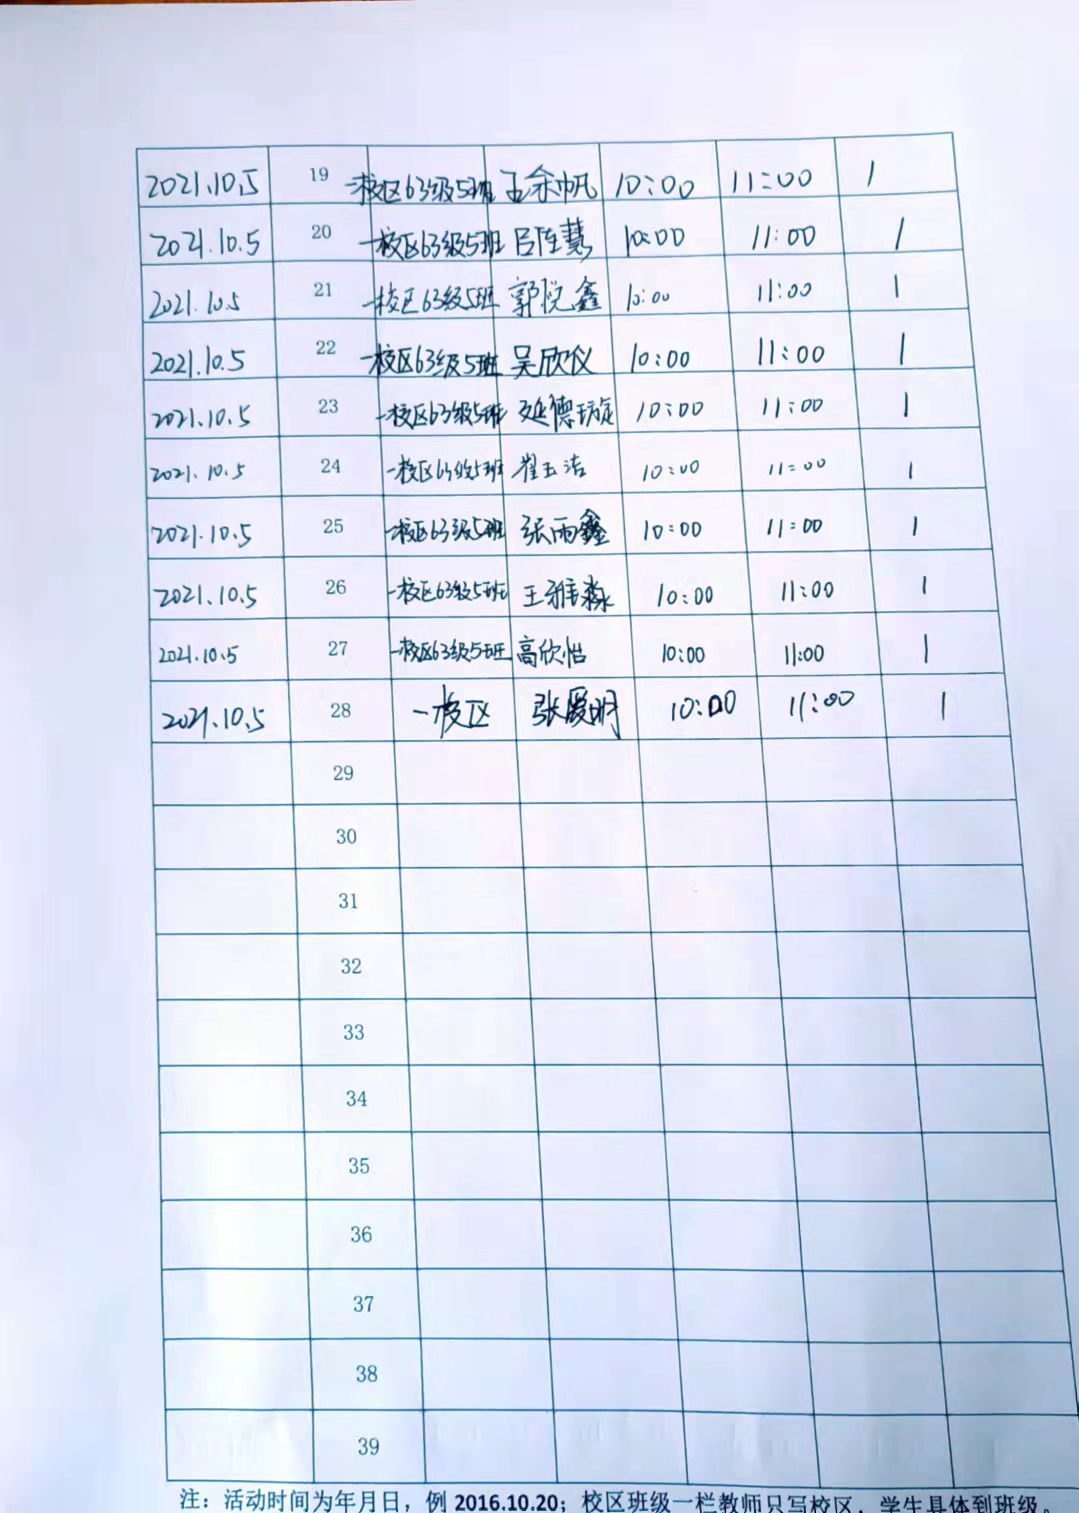 2021.10.5 19 一校区63级5班 王余帆 10:00 11:00 1
2021.10.5 20 一校区63级5班 10:00 11:00 1
2021.10.5 21 一校区63级5班 郭悦鑫 10:00 11:00 1
2021.10.5 22 一校区63级5班 吴欣仪 10:00 11:00 1
2021.10.5 23 一校区63级5班 延德璇 10:00 11:00 1
2021.10.5 24 一校区63级5班 崔玉洁 10:00 11:00 1
2021.10.5 25 一校区63级5班 张雨鑫 10:00 11:00 1
2021.10.5 26 一校区63级5班 王雅淼 10:00 11:00 1
2021.10.5 27 一校区63级5班 高欣怡 10:00 11:00 1
2021.10.5 28 一校区 张爱明 10:00 11:00 1
29
30
31
32
33
34
35
36
37
38
39
注：活动时间为年月日，例 2016.10.20；校区班级一栏教师只写校区，学生具体到班级。